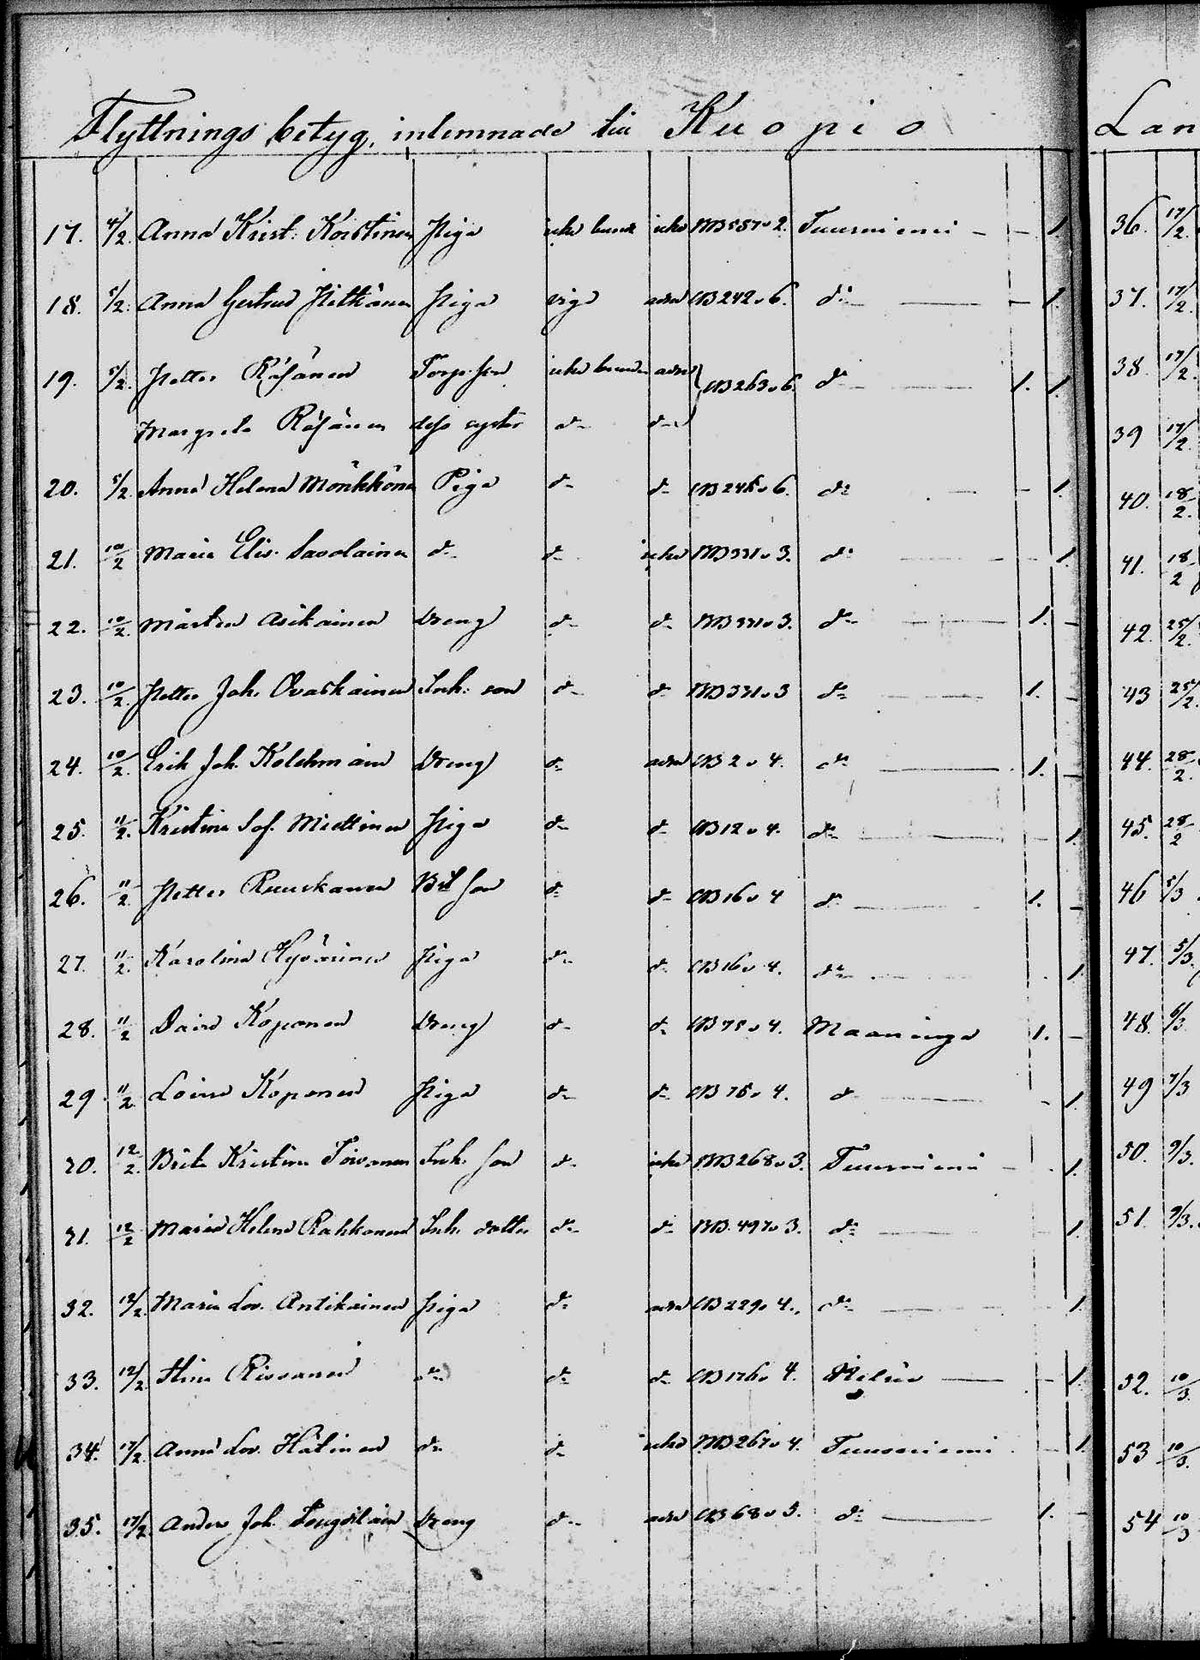 Flyttnings betyg, inlemnade till Kuopio
17. 4/2. Anna Krist. Korttinen Piga icke bunden icke MB557 v 2. Tuusniemi - - 1.
18. 5/2. Anna Gertrud Piga vigd B242 v 6. do — - 1.
19. 5/2. Petter Räsänen Torp. son icke bunden B263 v 6. do — 1. 1.
Margreta Räsänen dess syster do do
20. 5/2 Anna Helena Mönkkönen Piga do do B245 v 6. do — - 1.
21. 10/2 Maria Elis. Savolainen do do icke MB331 v 3. do — 1.
22. 10/2. Mårten Asikainen Dreng do do MB331 v 3. do — 1. -
23. 10/2. Petter Joh. Ovaskainen Inh. son do do MB331 v 3 do — 1. -
24. 10/2. Erik Joh. Kolehmain Dreng do B 2 v 4. do — 1. -
25. 11/2. Kristina Sof. Miettinen Piga do do B12 v 4. do — 1.
26. 11/2 Petter Ruuskanen son do do B16 v 4 do — 1. -
27. 11/2. Karolina Hyvärinen Piga do do B16 v 4. do — 1.
28. 11/2 David Koponen Dreng do do B75 v 4. Maaninga 1. -
29. 11/2. Lovisa Koponen Piga do do B75 v 4. do — - 1.
30. 12/2. Brita Kristina Toivanen Inh. son do icke MB268 v 3. Tuusniemi - 1.
31. 12/2 Maria Helena Rahkonen Inh. dotter do do MB. 497 v 3. do — 1.
32. 12/2. Maria Lov. Antikainen Piga do B229 v 4. do — 1.
33. 12/2 Stina Rissanen do do do B176 v 4. — - 1.
34. 17/2. Anna Lov. Hätinen do do icke MB267 v 4. Tuusniemi - 1.
35. 17/2. Anders Joh. Dreng do B68 v 5. do — 1. -
Lan
36. 17/2.
37. 17/2.
38. 17/2.
39 17/2.
40. 18/2.
41. 18/2
42. 25/2.
43 25/2.
44. 28/2.
45. 28/2
46 5/3
47. 5/3.
48. 6/3
49 7/3
50. 9/3.
51. 9/3.
52. 10/3.
53 10/3.
54 10/3